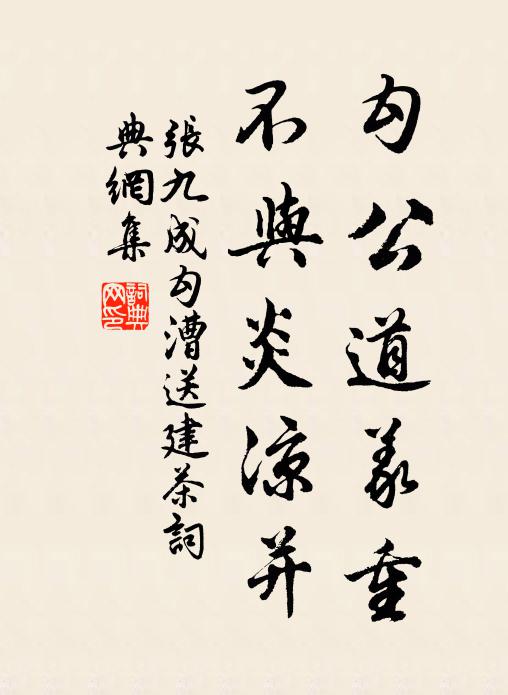 勾公道義重
不與炎涼并
張九成勾漕送建茶詞
典網集
詞典網印